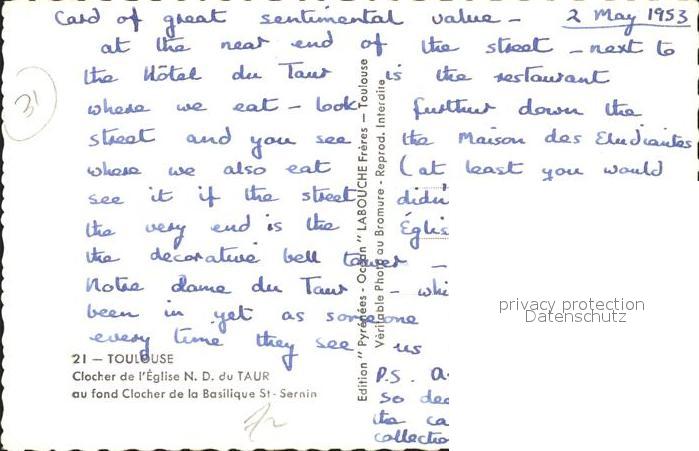 Card of great sentimental value - 2 May 1953
at the near end of the street - next to
the Hôtel du Taur is the restaurant
where we eat - look further down the
street and you see the Maison des Etudiantes
where we also eat (at least you would
see it if the street didn'
the very end is the Églis
the decorative bell tower -
Notre dame du Taur - whi
been in yet as someone
every time they see us
P.S. A
so dec
the ca
collectio
31
21 — TOULOUSE
Clocher de l'Église N. D. du TAUR
au fond Clocher de la Basilique St-Sernin
Edition " Pyrénées - Océan " LABOUCHE Frères — Toulouse
Véritable Photo au Bromure - Reprod. Interdite
privacy protection
Datenschutz